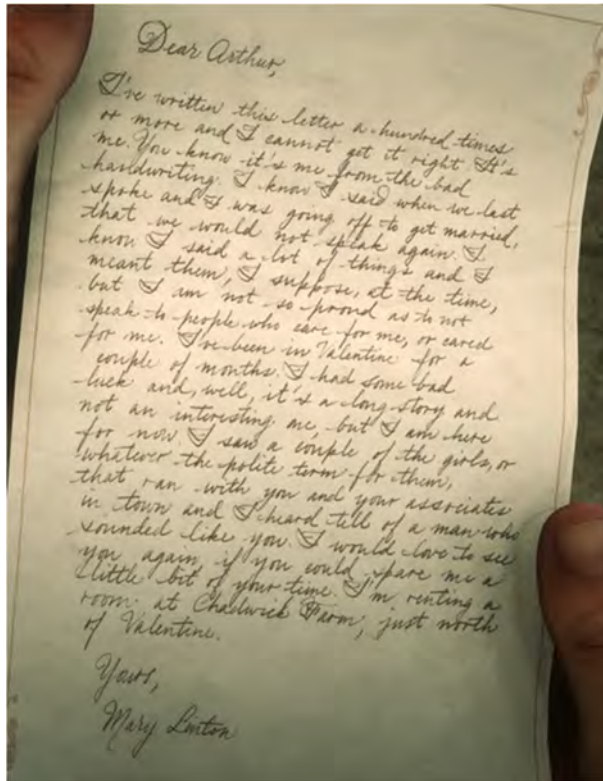 Dear Arthur,
I've written this letter a hundred times
or more and I cannot get it right. It's
me. You know it's me from the bad
handwriting. I know I said when we last
spoke and I was going off to get married,
that we would not speak again. I
know I said a lot of things and I
meant them, I suppose, at the time,
but I am not so proud as to not
speak to people who care for me, or cared
for me. I've been in Valentine for a
couple of months. I had some bad
luck and, well, it's a long story and
not an interesting one, but I am here
for now. I saw a couple of the girls, or
whatever the polite term for them,
that ran with you and your associates
in town and I heard tell of a man who
sounded like you. I would love to see
you again if you could spare me a
little bit of your time. I'm renting a
room at Chadwick Farm, just north
of Valentine.
Yours,
Mary Linton